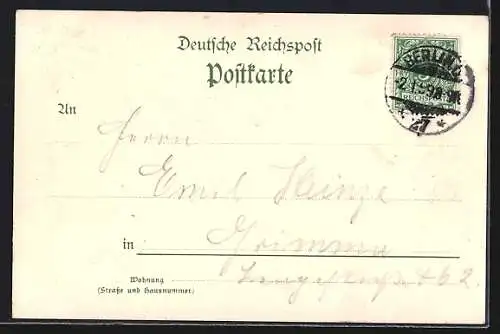 Deutsche Reichspost
Postkarte
BERLIN
2.1.98
* 27 *
An
Herrn
Emil Heinze
in Grimma
Wohnung
(Straße und Hausnummer)
62.